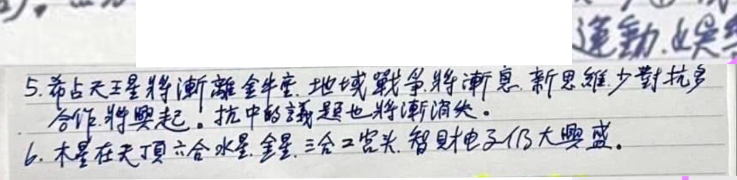 運動.娛樂
5.希占天王星將漸離金牛座.地域戰爭.將漸息.新思維.少對抗多
合作.將興起。抗中的議題也將漸消失。
6.木星在天頂六合水星.金星.三合2宮头.智財电子仍大興盛。